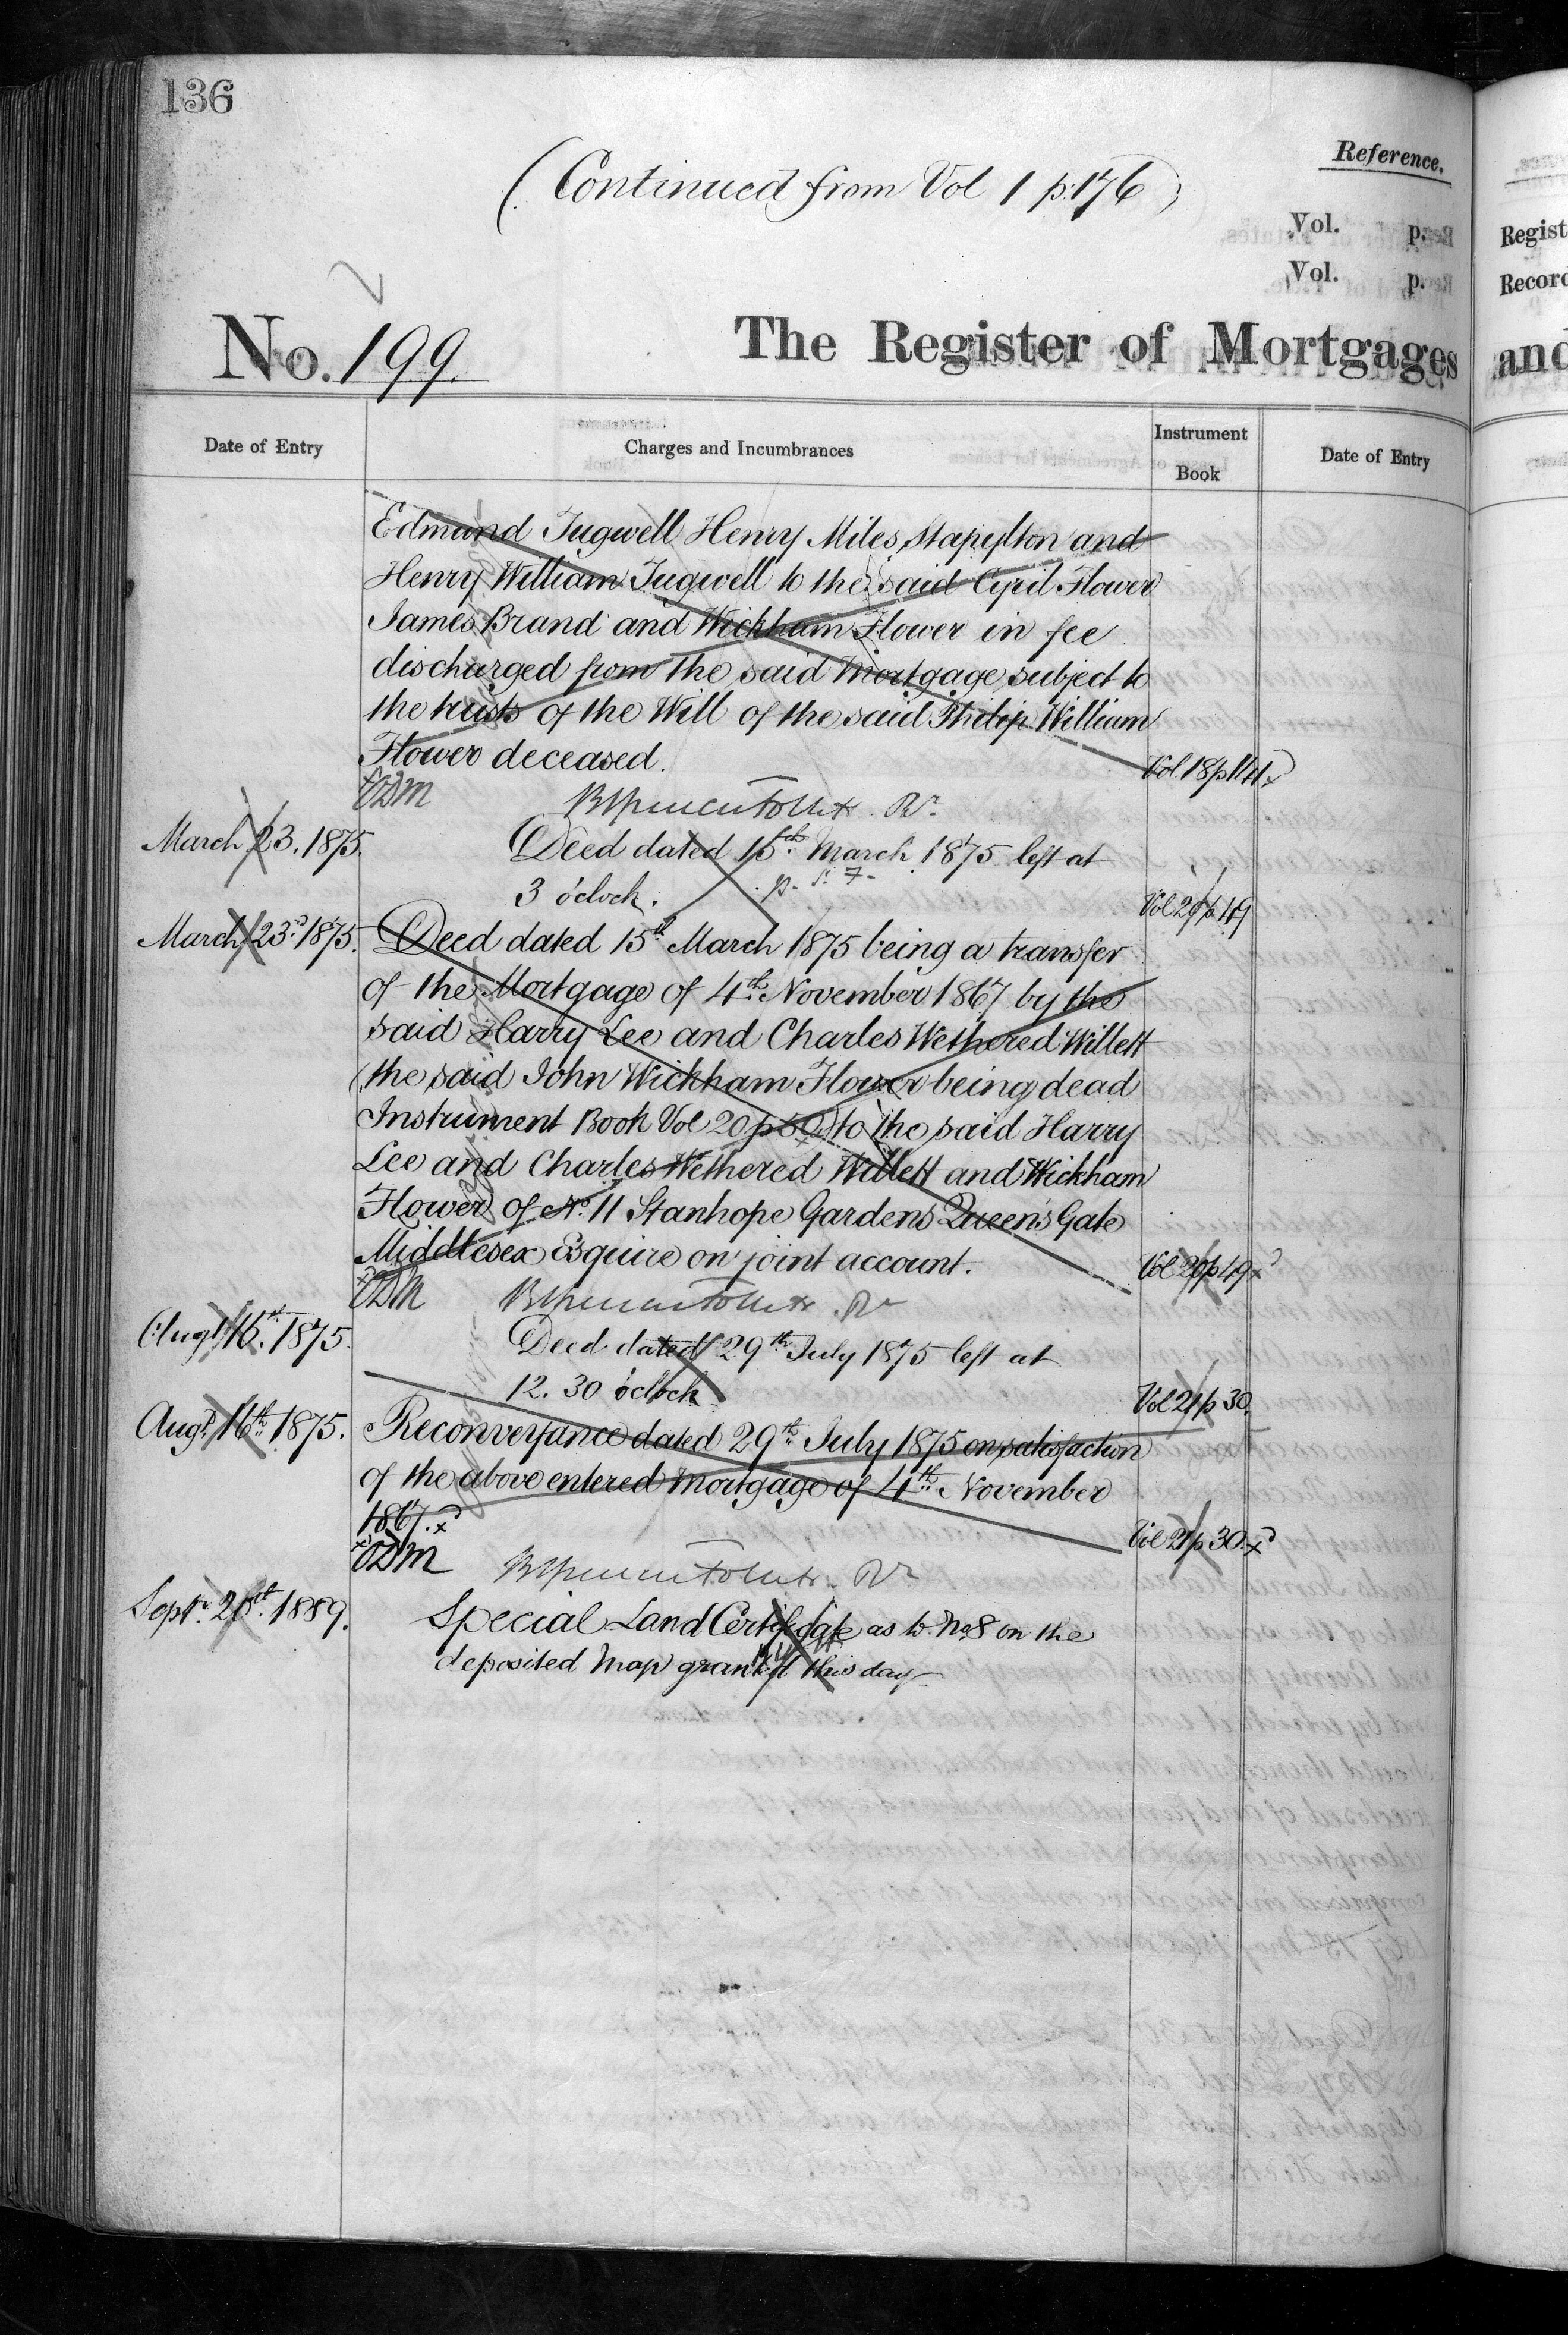 136
(Continued from Vol 1 p. 176)
Reference.
Vol. p.
Vol. p.
No. 199.
The Register of Mortgages
Date of Entry
Charges and Incumbrances
Instrument
Book
Date of Entry
Edmund Tugwell Henry Miles Stapylton and
Henry William Tugwell to the said Cyril Flower
James Brand and Wickham Flower in fee
discharged from the said Mortgage subject to
the trusts of the Will of the said Philip William
Flower deceased.
Vol. 18 p 141 x
March 23. 1875.
Deed dated 15th March 1875 left at
3 o'clock.
Vol 20 p 49
March 23d 1875.
Deed dated 15th March 1875 being a transfer
of the Mortgage of 4th November 1867 by the
said Harry Lee and Charles Wethered Willett
(the said John Wickham Flower being dead
Instrument Book Vol 20 p 50) to the said Harry
Lee and Charles Wethered Willett and Wickham
Flower of No. 11 Stanhope Gardens Queen's Gate
Middlesex Esquire on joint account.
Vol 20 p 49 x
Augt. 16th 1875.
Deed dated 29th July 1875 left at
12. 30 o'clock
Vol 21 p 30.
Augt. 16th 1875.
Reconveyance dated 29th July 1875 on satisfaction
of the above entered Mortgage of 4th November
1867. x
Vol 21 p 30 x
Septr. 1889.
Special Land Certificate as to No 8 on the
deposited Map granted this day
Regist
Record
and